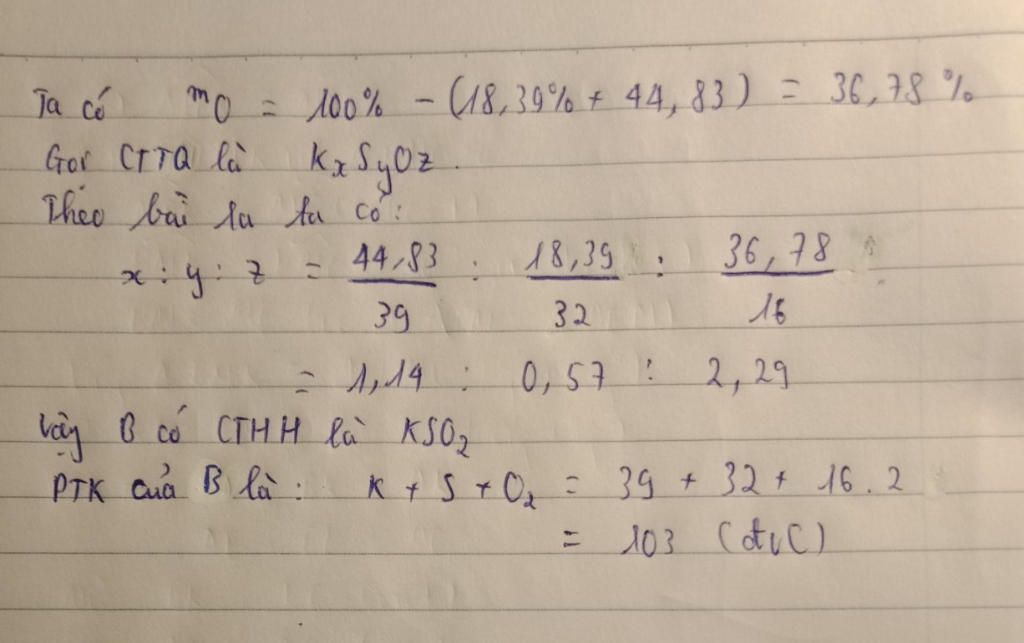 Ta có mO = 100% - (18,39% + 44,83) = 36,78 %
Gọi CTTQ là KxSyOz.
Theo bài ra ta có:
x : y : z = 44,83/39 : 18,39/32 : 36,78/16
= 1,14 : 0,57 : 2,29
Vậy B có CTHH là KSO2
PTK của B là: K + S + O2 = 39 + 32 + 16.2
= 103 (đvC)